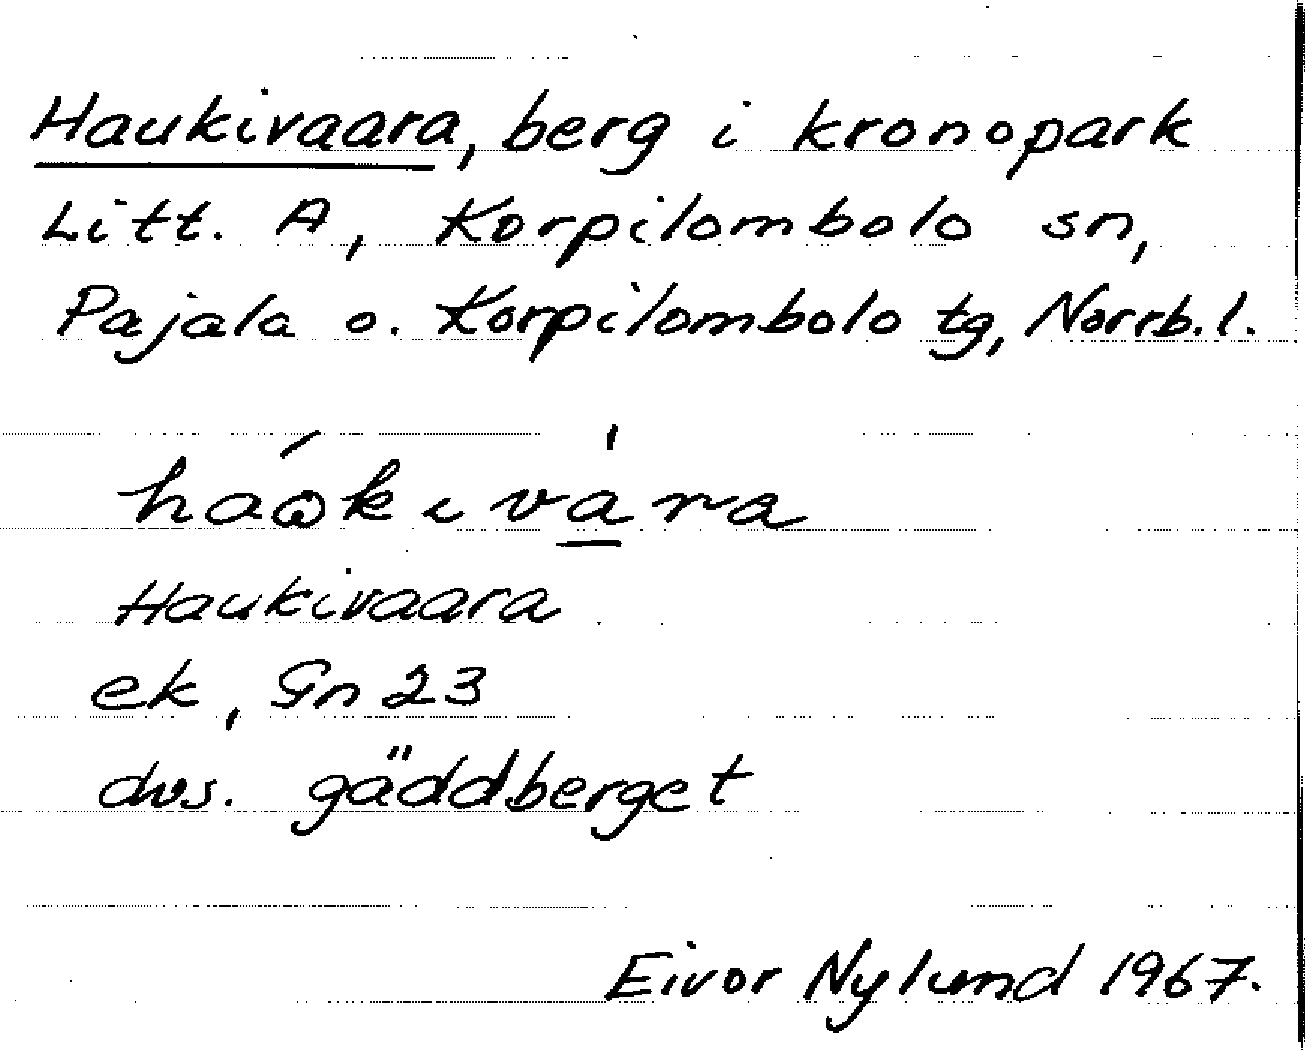 Haukivaara, berg i kronopark
Litt. A, Korpilombolo sn,
Pajala o. Korpilombolo tg, Norrb. l.
Haukivaara
ek, Gn 23
dvs. gäddberget
Eivor Nylund 1967.